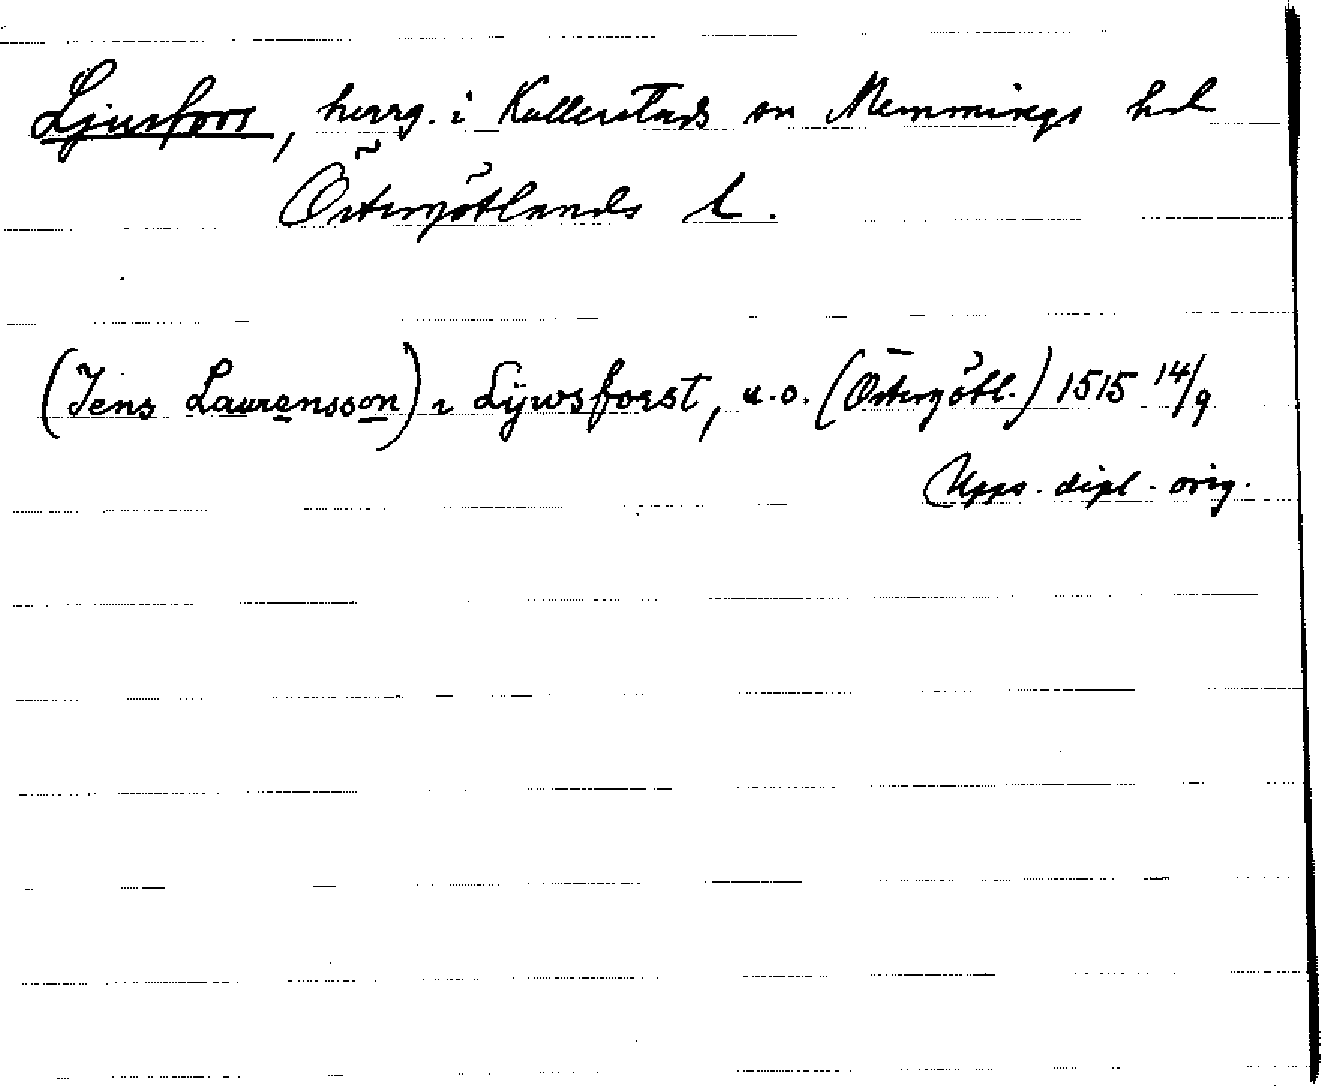 Ljusfors, herrg. i Kullerstads sn Memmings hd
Östergötlands l.
(Jens Laurensson) i Lÿwsforst, u.o. (Östergötl.) 1515 14/9
Upps. dipl. orig.